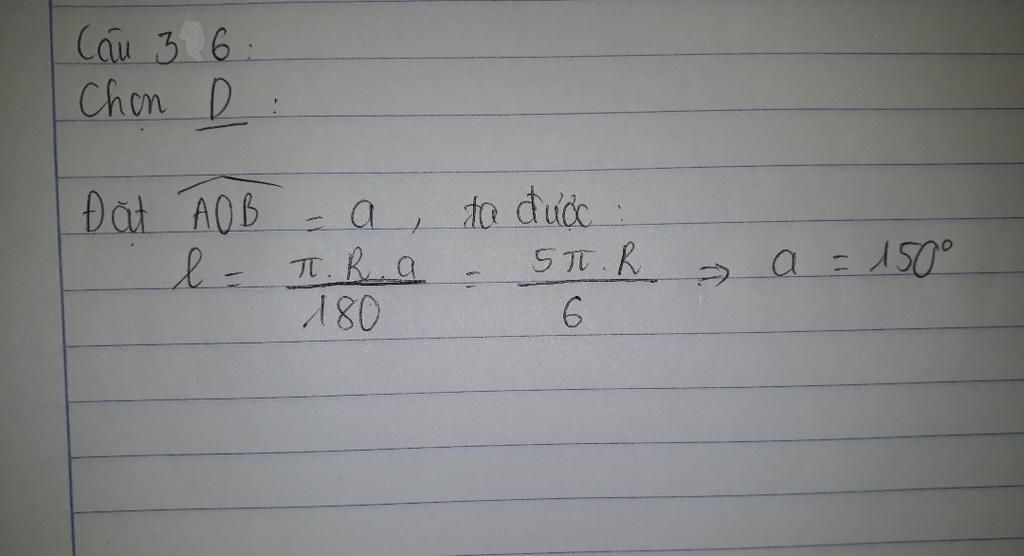 Câu 36:
Chọn D:
Đặt \widehat{AOB} = a, ta được:
l = \frac{π.R.a}{180} = \frac{5π.R}{6} ⇒ a = 150°